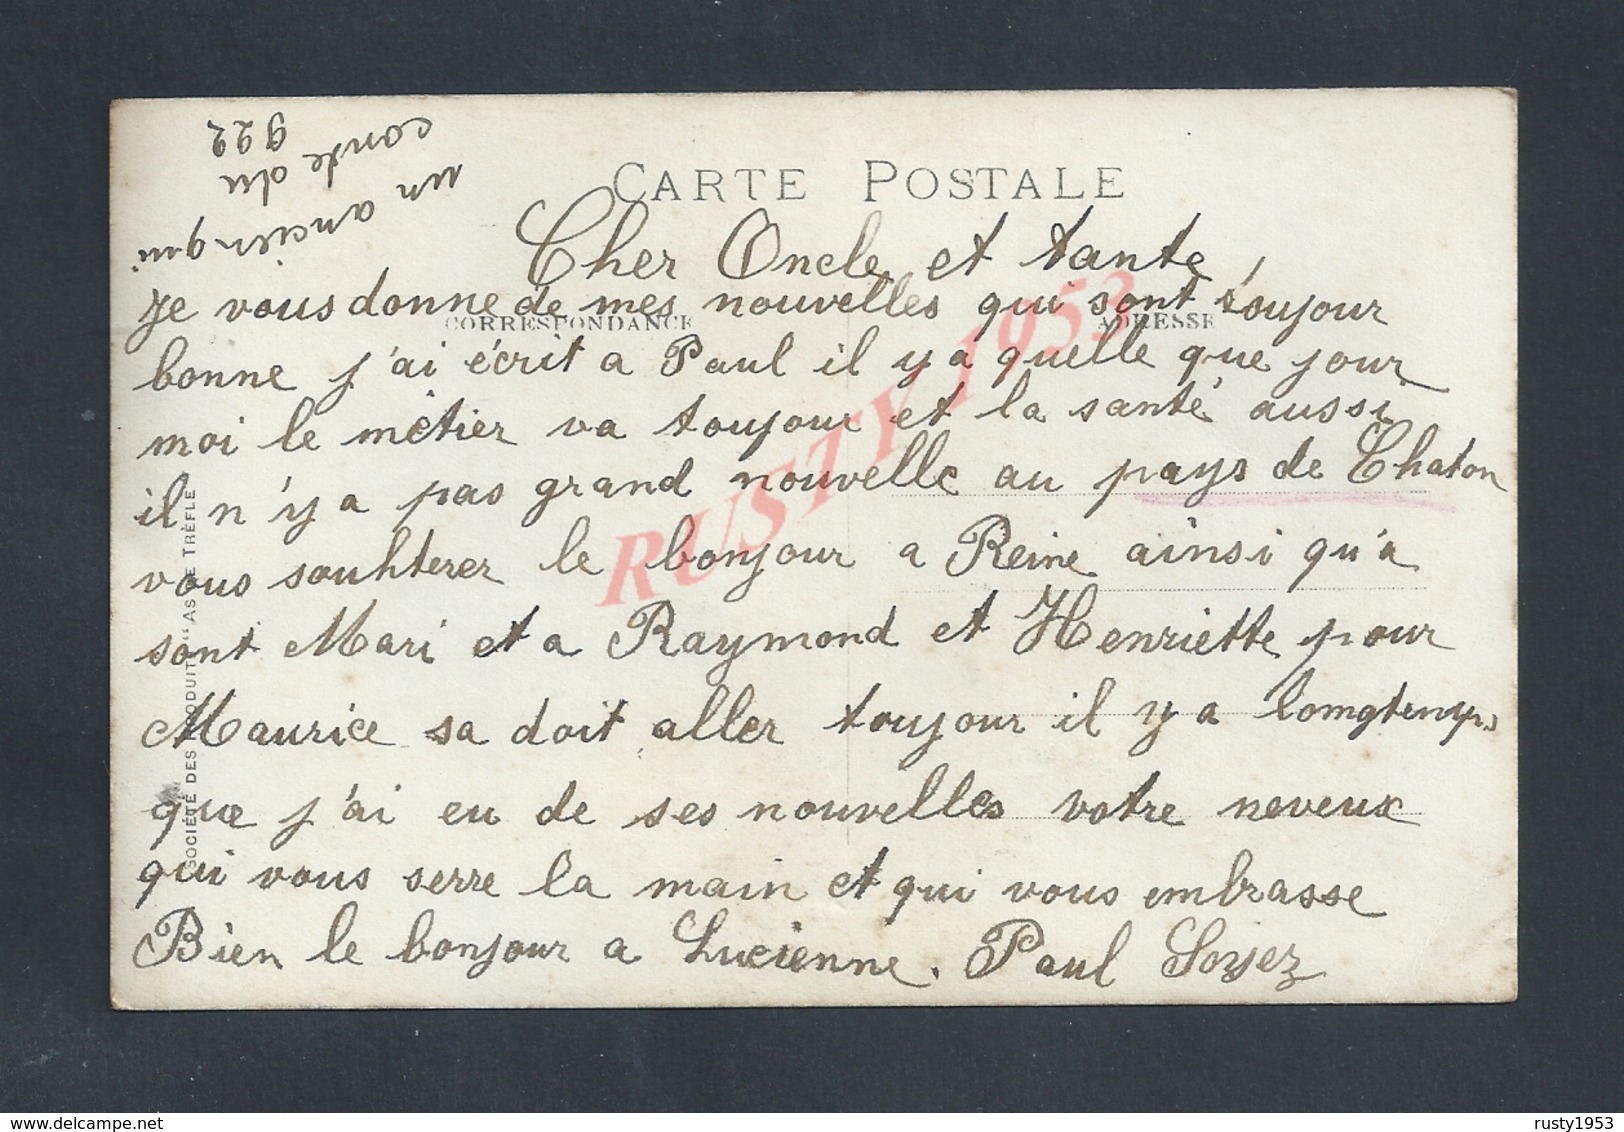 un ancien qui
conte du
922
CARTE POSTALE
Cher Oncle et tante
je vous donne de mes nouvelles qui sont toujour
CORRESPONDANCE
ADRESSE
bonne j'ai écrit a Paul il y a quelle que jour
moi le métier va toujour et la santé aussi
il n'y a pas grand nouvelle au pays de Chaton
vous souhterer le bonjour a Reine ainsi qu'a
sont Mari et a Raymond et Henriette pour
Maurice sa doit aller toujour il y a lomgtemps
que j'ai eu de ses nouvelles votre neveux
qui vous serre la main et qui vous embrasse
Bien le bonjour a Lucienne. Paul Soyez
SOCIÉTÉ DES PRODUITS "AS DE TRÈFLE"
RUSTY 1953
delcampe.net
rusty1953